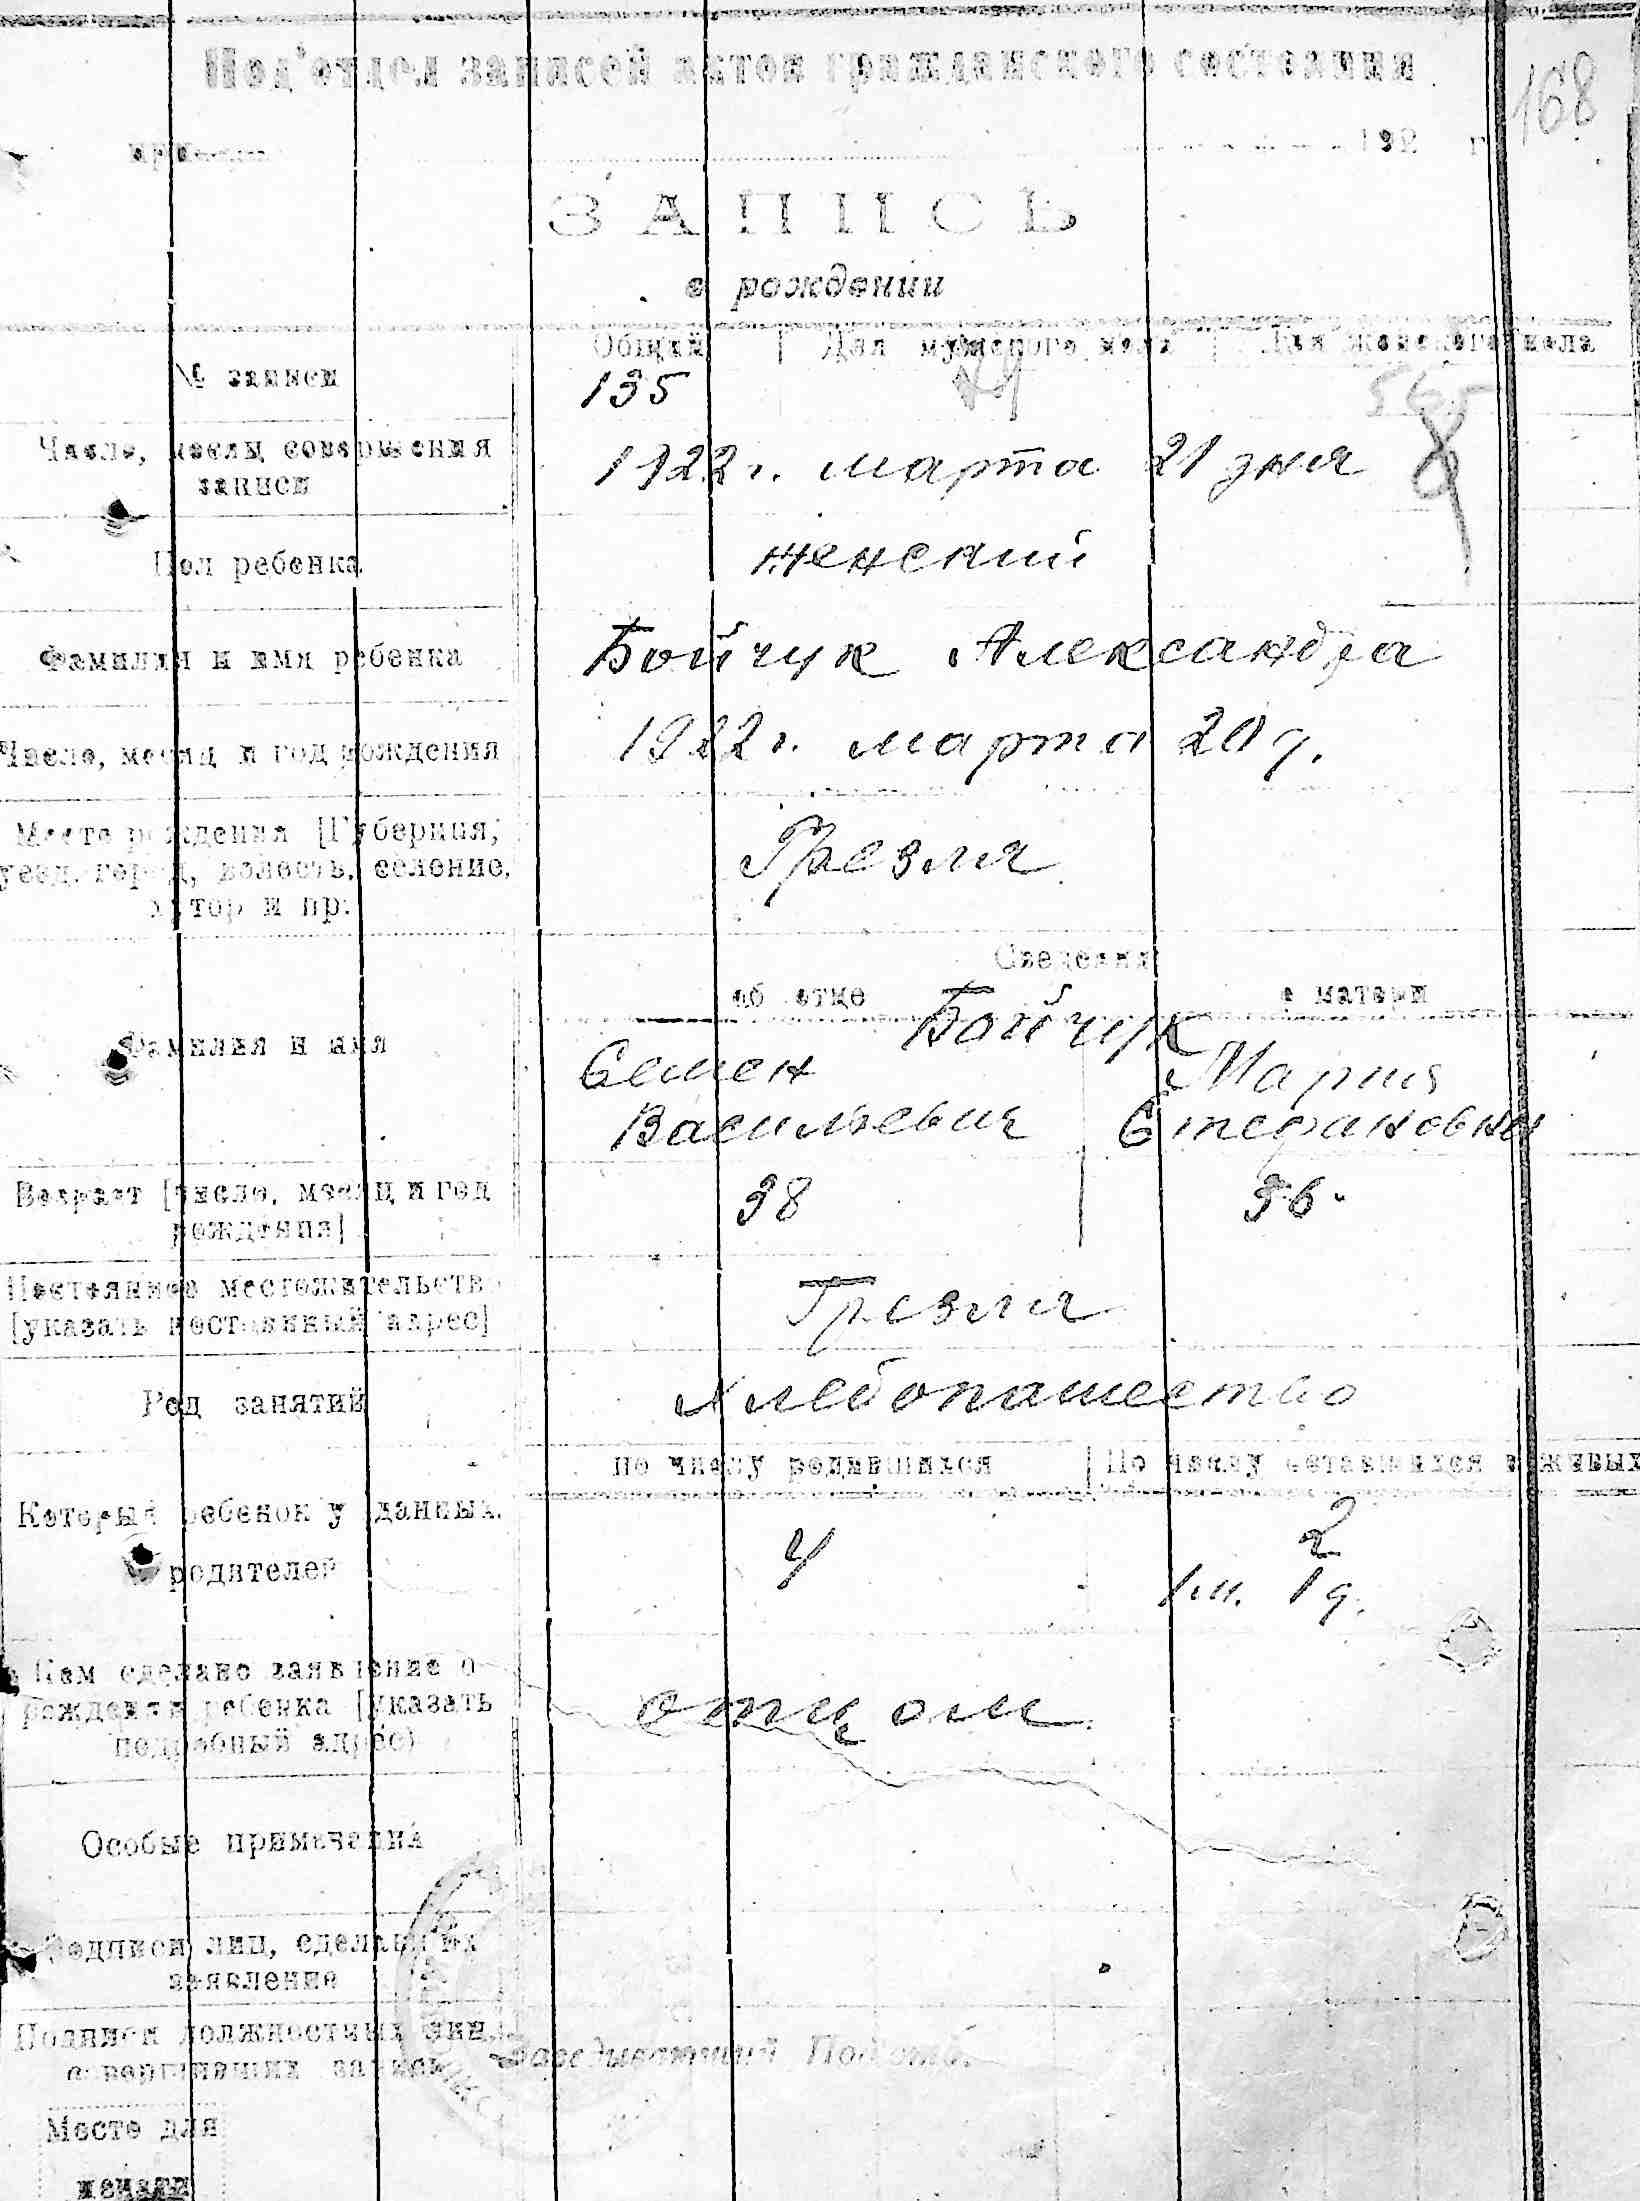 Под'отдел записей актов гражданского состояния
168
при
192 г
ЗАПИСЬ
о рождении
Общий | Для мужского пола | Для женского пола
№ записи 135 565
Число, месяц совершения 1922 г. марта 21 дня
записи
Пол ребенка женский
Фамилия и имя ребенка Бойчук Александра
Число, месяц и год рождения 1922 г. марта 20 д.
Место рождения [Губерния,
уезд, город, волость, селение, Грезля
хутор и пр.
Сведения
об отце о матери
Фамилия и имя Бойчук
Семен Мария
Васильевич Стефановны
Возраст [число, месяц и год 38 36
рождения]
Постоянное местожительство Грезля
[указать постоянный адрес]
Род занятий Хлебопашество
по числу родившихся | По числу оставшихся в живых
Который ребенок у данных 4 2
родителей 1 м. 1 д.
Кем сделано заявление о
рождении ребенка [указать отцом
подробный адрес)
Особые примечания
Подписи лиц, сделавших
заявление
Подписи должностных лиц,
совершивших запись Заведывающий Подотд.
Место для
печати